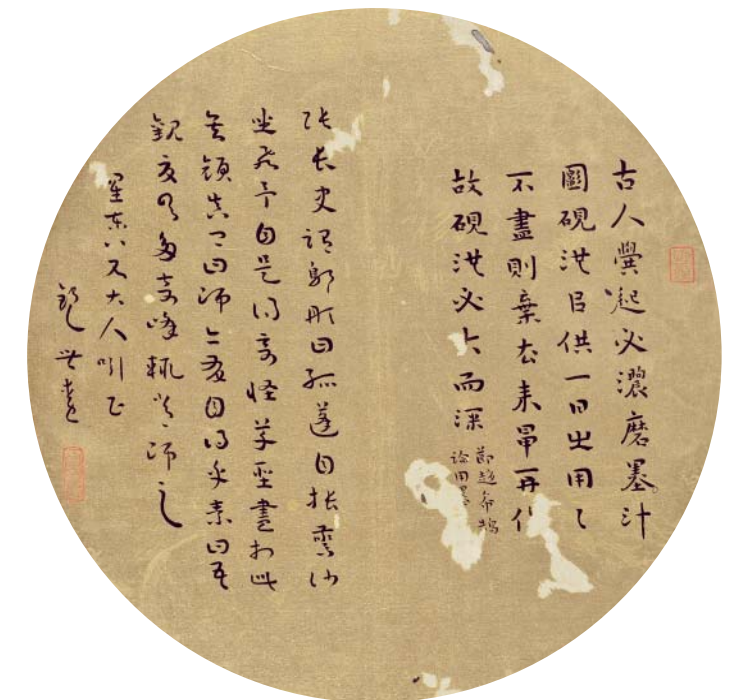 古人學起必濃磨墨汁
圖硯洪㠯供一日之用
不盡則棄去來早再作
故硯洪必大而深
節趙希鵠
論用墨
張長史謂鄔彤曰孤蓬自振驚沙
坐飛予自是得奇怪草聖盡於此
矣顏真卿曰師亦有自得乎素曰吾
觀夏雲多奇峰輒常師之
星東八又大人